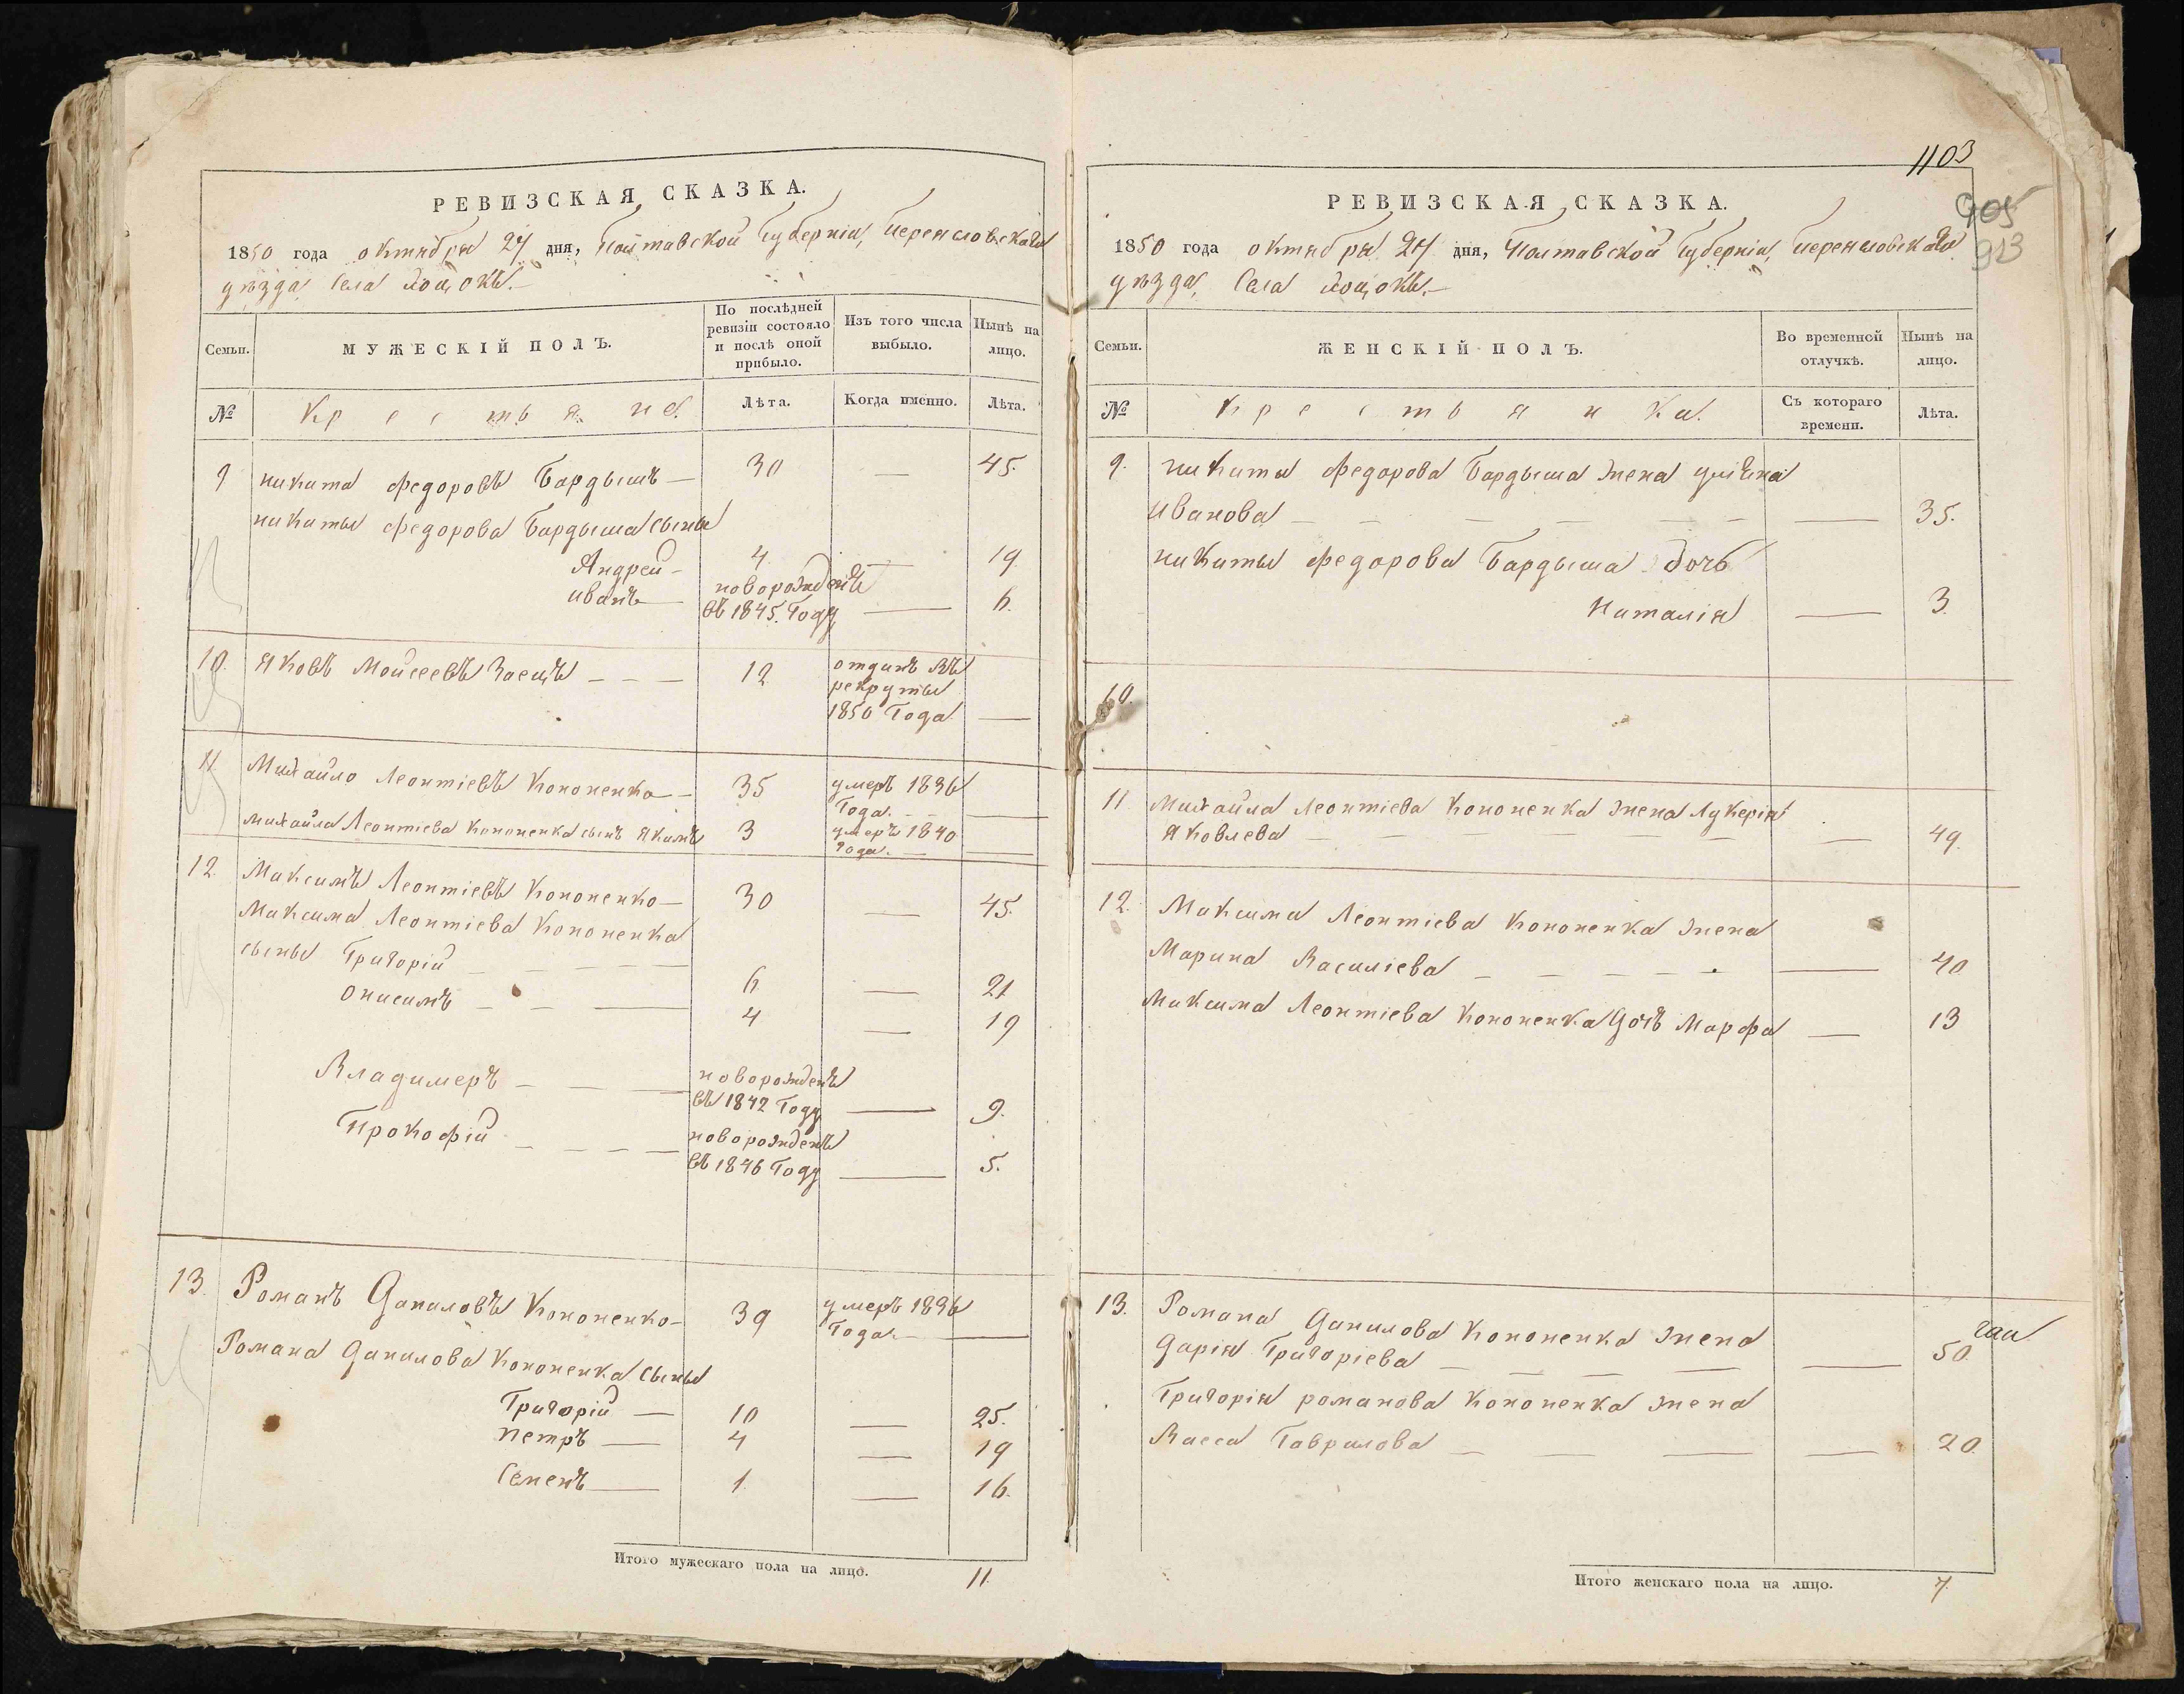 РЕВИЗСКАЯ СКАЗКА.
1850 года октября 27 дня, Полтавской Губерніи, Переясловскаго
уѣзда, Села
Семьи.
МУЖЕСКІЙ ПОЛЪ.
По послѣдней
ревизіи состояло
и послѣ оной
прибыло.
Изъ того числа
выбыло.
Нынѣ на
лицо.
№
Крестьяне.
Лѣта.
Когда именно.
Лѣта.
9 Никита Федоровъ Бардышъ — 30 — 45.
Никиты Федорова Бардыша сыны
Андрей — 4. — 19.
Иванъ — новорожденъ
въ 1845. Году — 6.
10. Яковъ Мойсеевъ Заецъ — — — 12 отданъ въ
рекруты
1850 Года. —
11 Михайло Леонтіевъ Кононенко — 35 умеръ 1836
Года. — —
Михайла Леонтіева Кононенка сынъ Якимъ 3 умеръ 1840
Года. — —
12. Максимъ Леонтіевъ Кононенко — 30 — 45.
Максима Леонтіева Кононенка
сыны Григорій — — — — 6 — 21
Онисимъ — — — 4 — 19
Владимеръ — — — новорожденъ
въ 1842 Году — 9.
Прокофій — — — — новорожденъ
въ 1846 Году — 5.
13. Романъ Даниловъ Кононенко — 39 умеръ 1836
Года. — —
Романа Данилова Кононенка сыны
Григорій — 10 — 25.
Петръ — 4 — 19
Семенъ — 1. — 16.
Итого мужескаго пола на лицо. 11.
1103
905
913
РЕВИЗСКАЯ СКАЗКА.
1850 года октября 27 дня, Полтавской Губерніи, Переясловскаго
уѣзда, Села
Семьи.
ЖЕНСКІЙ ПОЛЪ.
Во временной
отлучкѣ.
Нынѣ на
лицо.
№
Крестьянки.
Съ котораго
времени.
Лѣта.
9. Никиты Федорова Бардыша жена
Иванова — — — — — — — 35.
Никиты Федорова Бардыша дочь
Наталія — 3.
10.
11. Михайла Леонтіева Кононенка жена Лукерія
Яковлева — — — — — 49.
12. Максима Леонтіева Кононенка жена
Марина Василіева — — — — — — 40
Максима Леонтіева Кононенка дочь Марфа — 13
13. Романа Данилова Кононенка жена
Дарія Григоріева — — — — — 50.
Григорія Романова Кононенка жена
Васса Гаврилова — — — — 20.
Итого женскаго пола на лицо. 7.